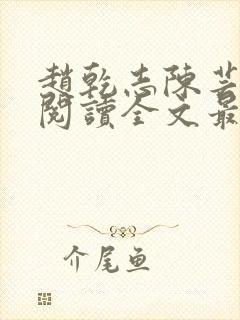 趙乾志陳芸
閱讀全文最
介尾鱼